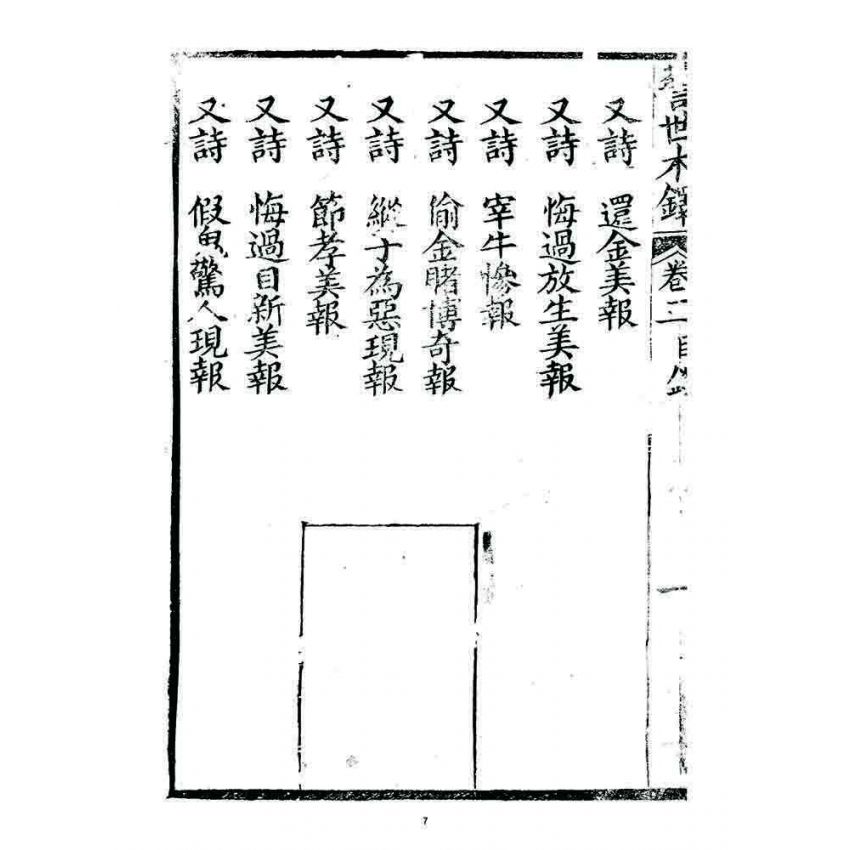 世木鐸 卷二 目
又詩 還金美報
又詩 悔過放生美報
又詩 宰牛慘報
又詩 偷金賭博奇報
又詩 縱子為惡現報
又詩 節孝美報
又詩 悔過自新美報
又詩 假鬼驚人現報
一
7